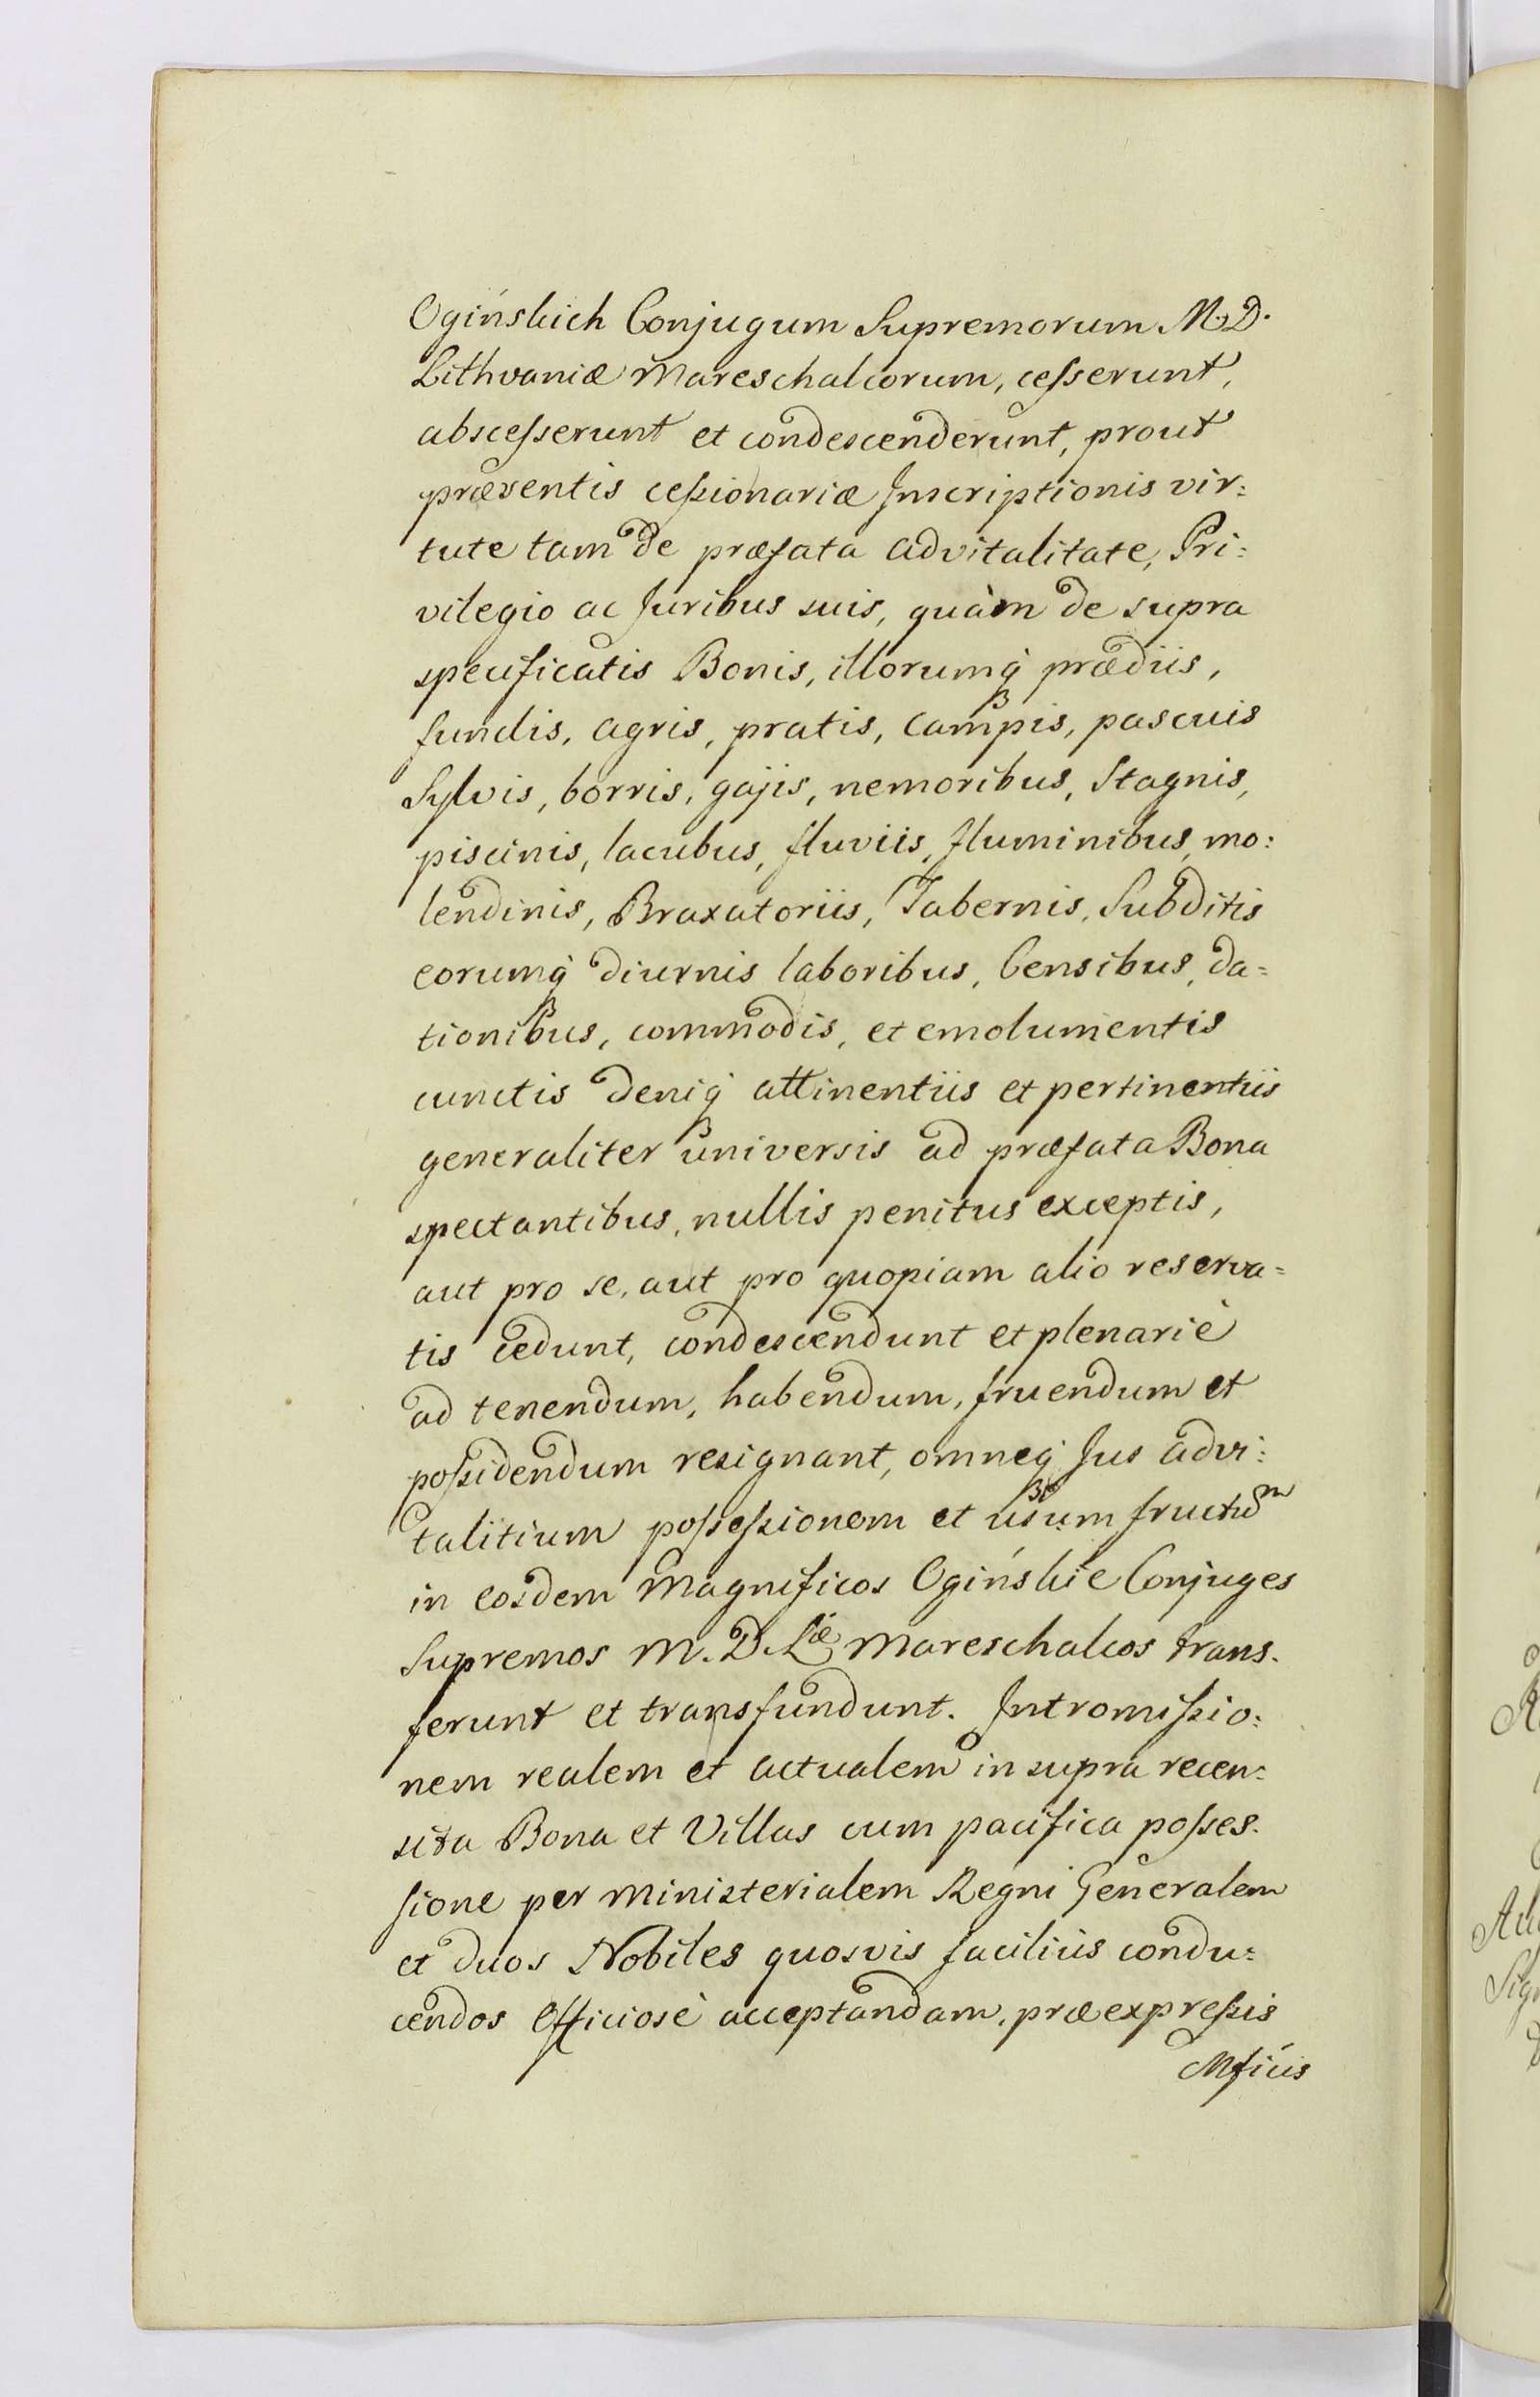 Ogińskich Conjugum Supremorum M. D.
Lithvaniæ Mareschalcorum, ceſserunt,
absceſserunt et condescenderunt, prout
præsentis ceſsionariæ Inscriptionis vir:
tute tam de præfata advitalitate, Pri:
vilegio ac Juribus suis, quàm de supra
specificatis Bonis, illorumq́ prædiis,
fundis, agris, pratis, campis, pascuis
Sylvis, borris, gajis, nemoribus, Stagnis,
piscinis, lacubus, fluviis, fluminibus, mo:
lendinis, Braxatoriis, Tabernis, Subditis
eorumq́ diurnis laboribus, Censibus, da=
tionibus, commodis, et emolumentis
cunctis deniq́ attinentiis et pertinentiis
generaliter universis ad præfata Bona
spectantibus, nullis penitus exceptis,
aut pro se, aut pro quopiam alio reserva=
tis cedunt, condescendunt et plenariè
ad tenendum, habendum, fruendum et
poſsidendum resignant, omneq́ Jus advi:
talitium poſseſsionem et usum fructũm
in eosdem Magnificos Ogińskie Conjuges
Supremos M. D. Læ Mareschalcos trans.
ferunt et transfundunt. Intromiſsio:
nem realem et actualem in supra recen:
sita Bona et Villas cum pacifica poſses.
sione per Ministerialem Regni Generalem
et duos Nobiles quosvis faciliùs condu:
cendos officiosè acceptandam, præexpreſsis
Mficis